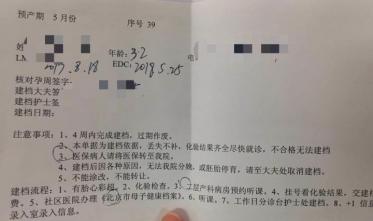 预产期 5月份 序号 39
姓
年龄: 32 电
LM 2017.8.18 EDC: 2018.5.25
核对孕周签字
建档大夫签
建档护士签
建档日期:
注意事项: 1、4周内完成建档,过期作废。
2、本单据为建档依据,丢失不补,化验结果齐全尽快就诊,不合格无法建档
3、医保病人请将医保转至我院。
4、建档后因各种原因,无法我院分娩,或胚胎停育,请至大夫处取消建档。
5、不能涂改,不能转让。
建档流程: 1、有胎心彩超。2、化验检查。3、产科病房预约听课。4、挂号看化验结果,交建档
费。5、社区医院办理《北京市母子健康档案》。6、听课。7、工作日分诊台护士处建档。8、+1信息
录入室录入信息。